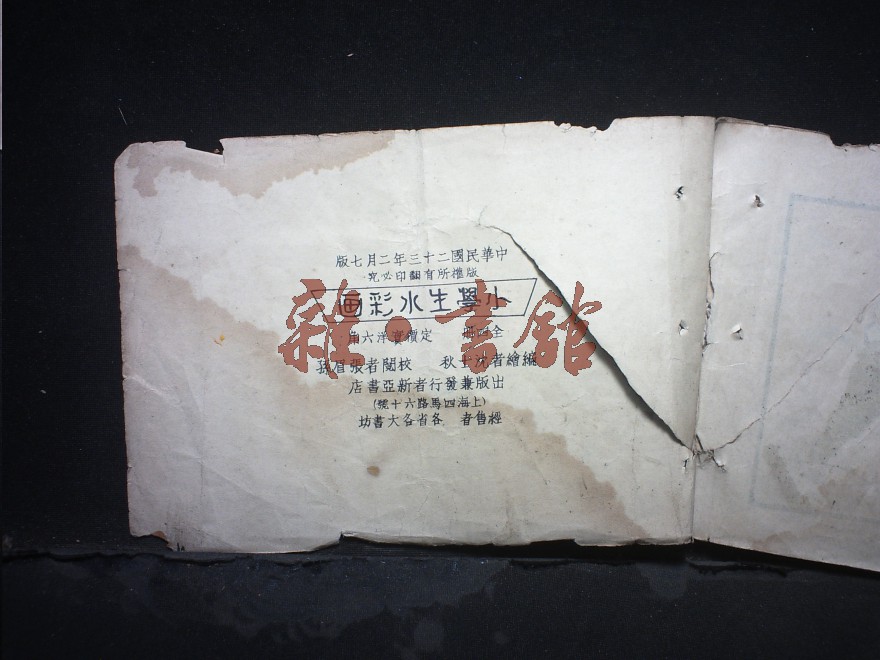 中華民國二十三年二月七版
版權所有翻印必究
小學生水彩画
全四冊 定價實洋六角
編繪者沈士秋 校閱者張眉孫
出版兼發行者新亞書店
(上海四馬路六十號)
經售者 各省各大書坊
雜·書館